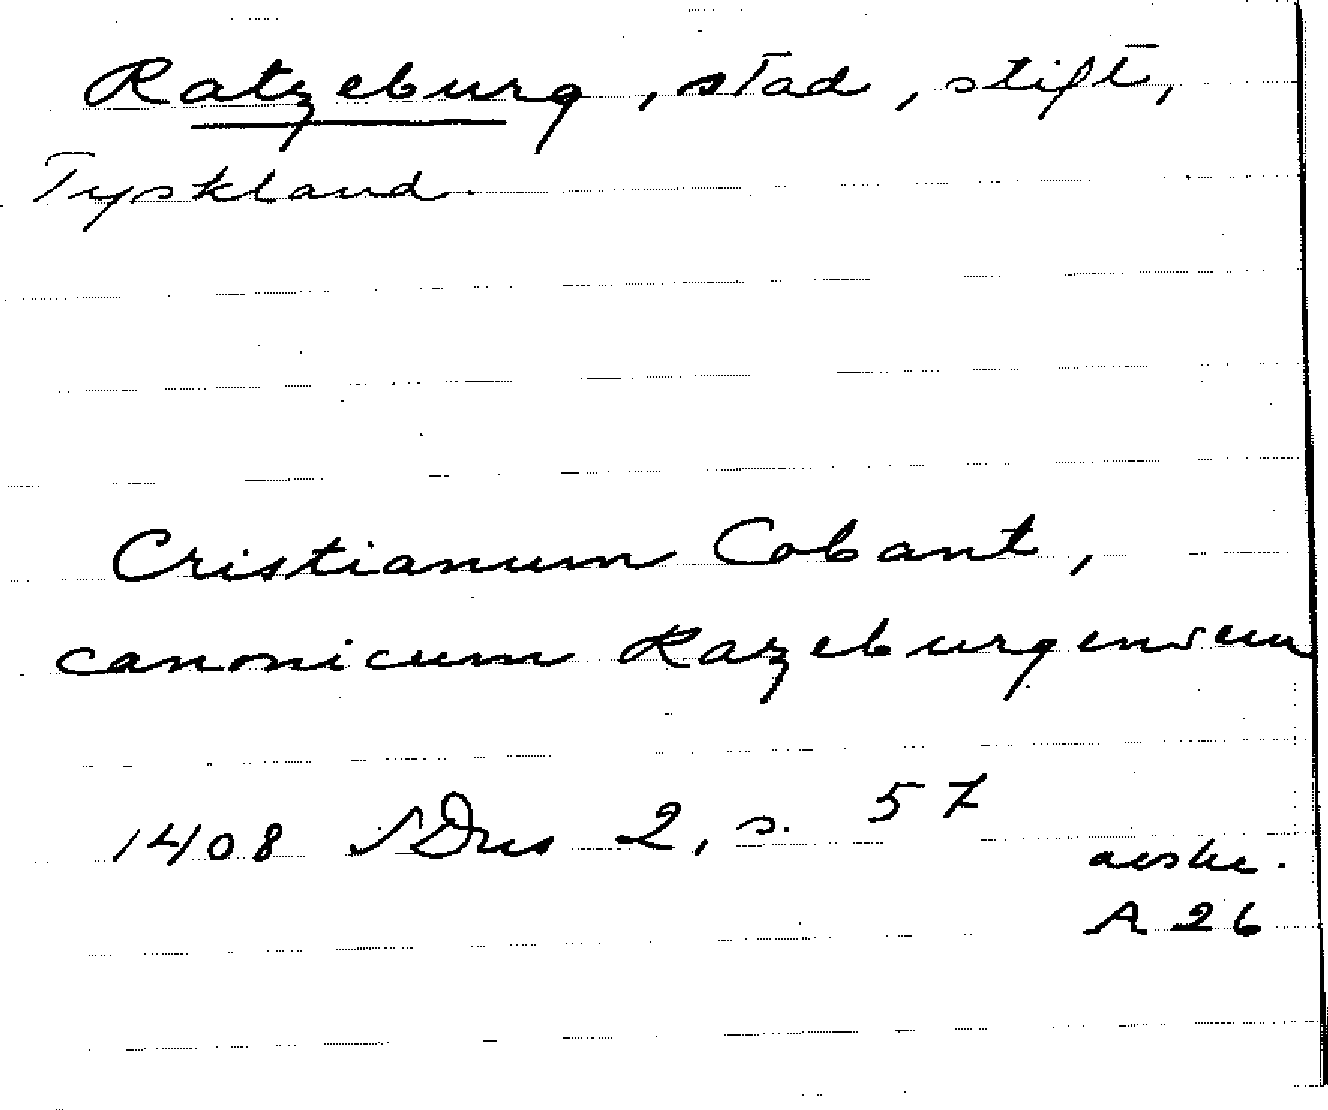 Ratzeburg, stad, stift,
Tyskland.
Cristianum Cobant,
canonicum Razeburgensem
1408 SDns 2, s. 57
avskr.
A 26